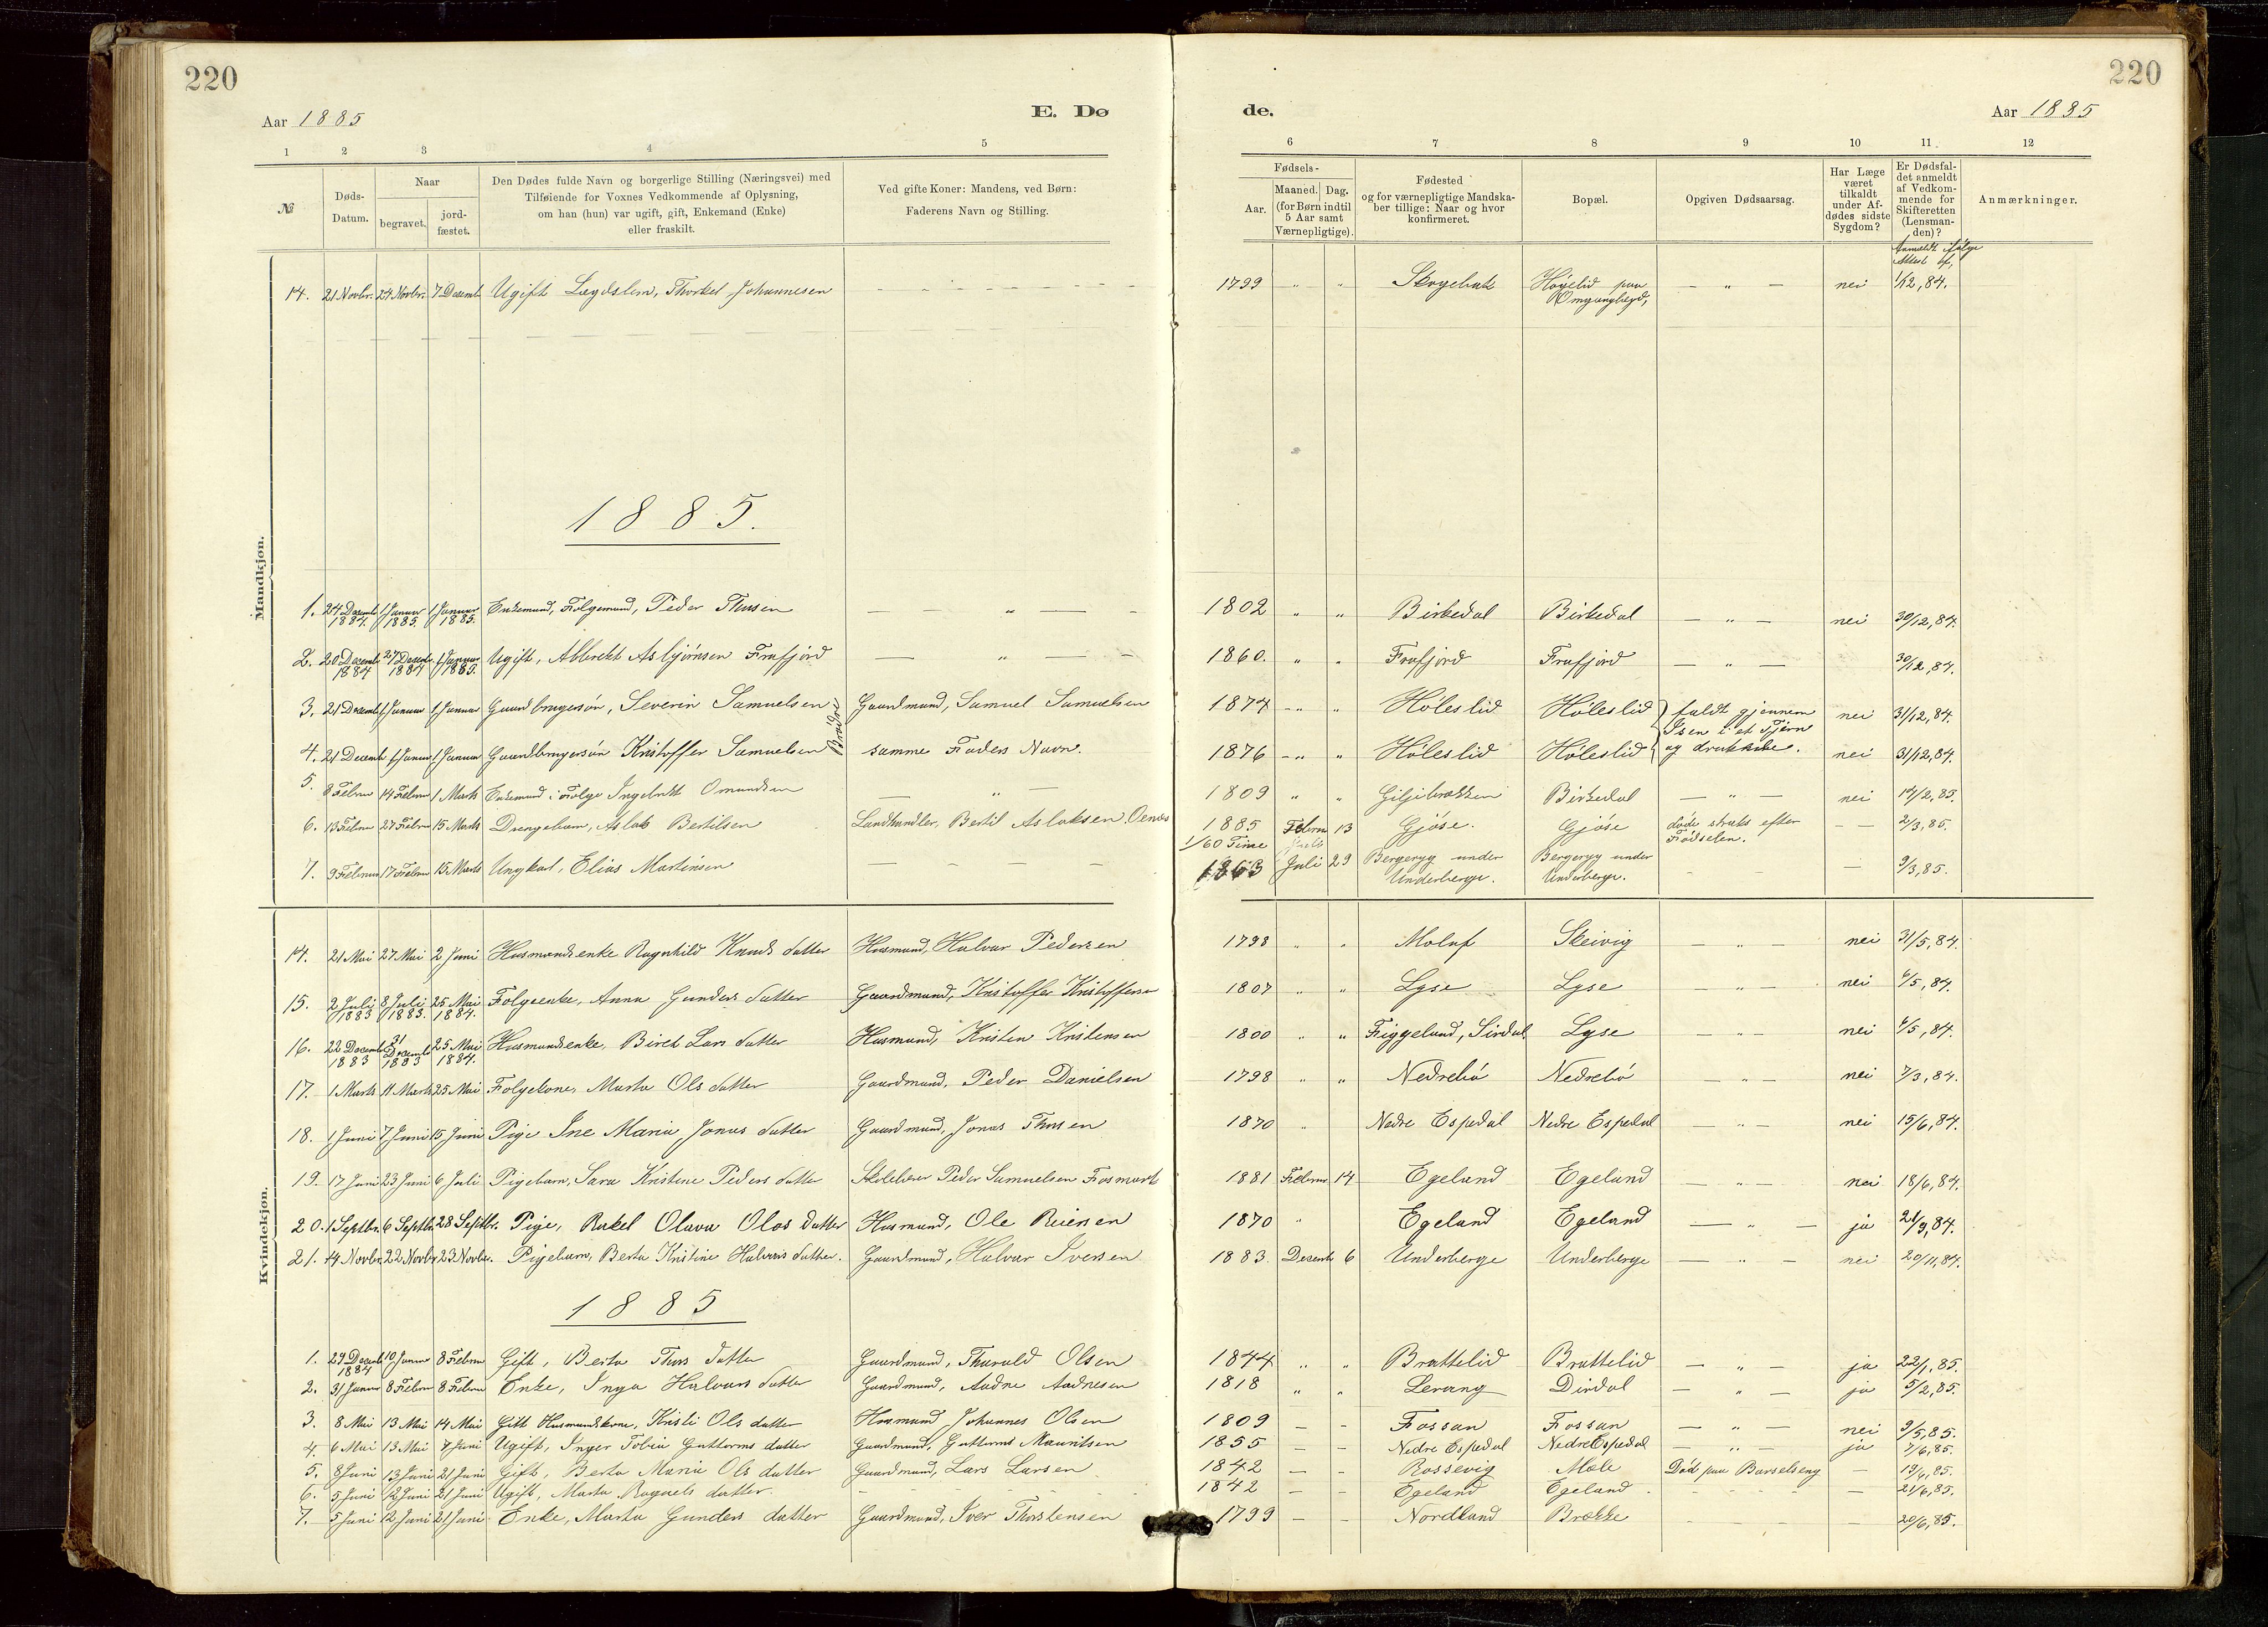 220
220
Aar 1885
E. Dø
de.
Aar 1885
1 2 3 4 5 6 7 8 9 10 11 12
№
Døds-
Datum.
Naar
begravet.
jord-
fæstet.
Den Dødes fulde Navn og borgerlige Stilling (Næringsvei) med
Tilføiende for Voxnes Vedkommende af Oplysning,
om han (hun) var ugift, gift, Enkemand (Enke)
eller fraskilt.
Ved gifte Koner: Mandens, ved Børn:
Faderens Navn og Stilling.
Fødsels-
Aar.
Maaned. Dag.
(for Børn indtil
5 Aar samt
Værnepligtige).
Fødested
og for værnepligtige Mandska-
ber tillige: Naar og hvor
konfirmeret.
Bopæl.
Opgiven Dødsaarsag.
Har Læge
været
tilkaldt
under Af-
dødes sidste
Sygdom?
Er Dødsfal-
det anmeldt
af Vedkom-
mende for
Skifteretten
(Lensman-
den)?
Anmærkninger.
Mandkjøn.
Anmeldt ifølge
Attest af,
14. 21 Novbr. 24 Novbr. 7 Decemb. Ugift Lægdslem, Thorkel Johannesen - " - 1799 " " Skogebak Høgelid paa - " - nei 1/12, 84.
Omgangslægd,
1885.
1. 24 Decemb 1884. 1 Januar 1885. 1 Januar 1885. Enkemand, Folgemand, Peder Thorsen - " - 1802 " " Birkedal Birkedal - " - nei 30/12, 84.
2. 20 Decemb 1884 27 Decemb 1884 1 Januar 1885. Ugift, Albrekt Asbjørnsen Frafjord - " - 1860. " " Frafjord Frafjord - " - 30/12, 84.
3. 21 Decemb 1 Januar 1 Januar Gaardbrugersøn, Severin Samuelsen Gaardmand, Samuel Samuelsen 1874 - " " Høleslid Høleslid faldt gjennem nei 31/12, 84.
Brødre
Isen i et Tjern
4. 21 Decemb 1 Januar 1 Januar Gaardbrugersøn Kristoffer Samuelsen samme Faders Navn. 1876 - " " Høleslid Høleslid og druknede. nei 31/12, 84.
5. 8 Februar 14 Februar 1 Marts Enkemand i Folge Ingebrekt Omundsen - " - 1809 " " Giljebrækken Birkedal - " - nei 14/2, 85.
6. 13 Februar 27 Februar 15 Marts Drengebarn, Aslak Bertilsen Landhandler, Bertil Aslaksen Oenæs 1885 Februar 13 Gjøse. Gjøse døde straks efter - - 2/3, 85.
1/60 Time
Fødselen.
7. 9 Februar 17 Februar 15 Marts Ungkarl, Elias Martinsen - - - - 1863 Juli 29 Bergeryg under Bergeryg under - - - 9/3, 85.
Underberge. Underberge.
Kvindekjøn.
14. 21 Mai 27 Mai 2 Juni Husmandsenke Ragnhild Knuds datter Husmand, Halvar Pedersen 1798 " " Molaf Skeivig - " - nei 31/5, 84.
15. 2 Juli 1883 8 Juli 1883. 25 Mai 1884. Folgeenke, Anna Gunders datter Gaardmand, Kristoffer Kristoffersen 1807 " " Lyse Lyse - " - nei 6/5, 84.
16. 22 Decemb 1883 31 Decemb 1883 25 Mai 1884. Husmandsenke, Biret Lars datter Husmand, Kristen Kristensen 1800 " " Figgeland, Sirdal Lyse - " - nei 6/5, 84.
17. 1 Marts 11 Marts 25 Mai Folgekone, Marta Ols datter Gaardmand, Peder Danielsen 1798 " " Nedrebø Nedrebø - " - nei 7/3, 84.
18. 1 Juni 7 Juni 15 Juni Pige Ine Maria Jonas datter Gaardmand, Jonas Thorsen 1870 " Nedre Espedal Nedre Espedal - " - nei 15/6, 84.
19. 17 Juni 23 Juni 6 Juli Pigebarn, Sara Kristine Peders datter Skolelærer Peder Samuelsen Fosmark 1881 Februar 14 Egeland Egeland - " - nei 18/6, 84.
20. 1 Septbr. 6 Septbr. 28 Septbr. Pige, Rakel Olava Olas datter Husmand, Ole Reiersen 1870 " Egeland Egeland - " - ja 21/9, 84.
21. 14 Novbr. 22 Novbr. 23 Novbr. Pigebarn, Berta Kristine Halvars datter. Gaardmand, Halvar Iversen 1883. Decemb 6 Underberge Underberge - " - nei 20/11, 84.
1885
1. 29 Decemb 1884 10 Januar 8 Februar Gift, Berta Thors datter Gaardmand, Tharald Olsen 1844 " " Brattelid Brattelid - " - ja 22/1, 85.
2. 31 Januar 8 Februar 8 Februar Enke, Inga Halvars datter Gaardmand, Aadne Aadnesen 1818 " " Levang Dirdal - " - ja 5/2, 85.
3. 8 Mai 13 Mai 14 Mai Gift Husmandskone, Kristi Ols datter Husmand Johannes Olsen 1809 - - Fossan Fossan - " - nei 9/5, 85.
4. 6 Mai 13 Mai 7 Juni Ugift, Inger Tobia Guttorms datter Gaardmand, Guttorms Mauritsen 1855 - - Nedre Espedal Nedre Espedal - " - ja 7/6, 85.
5. 8 Juni 13 Juni 21 Juni Gift, Berta Maria Ols datter Gaardmand, Lars Larsen 1842 - - Rossevig Mæle Død paa Barselseng - 19/6, 85.
6. 5 Juni 12 Juni 21 Juni Ugift, Marta Ragnels datter. - - - 1842 - - Egeland Egeland - - - - 21/6, 85.
7. 5 Juni 12 Juni 21 Juni Enke, Marta Gunders datter Gaardmand, Iver Thorstensen 1799 - - Nordland Brække - - - - 20/6, 85.